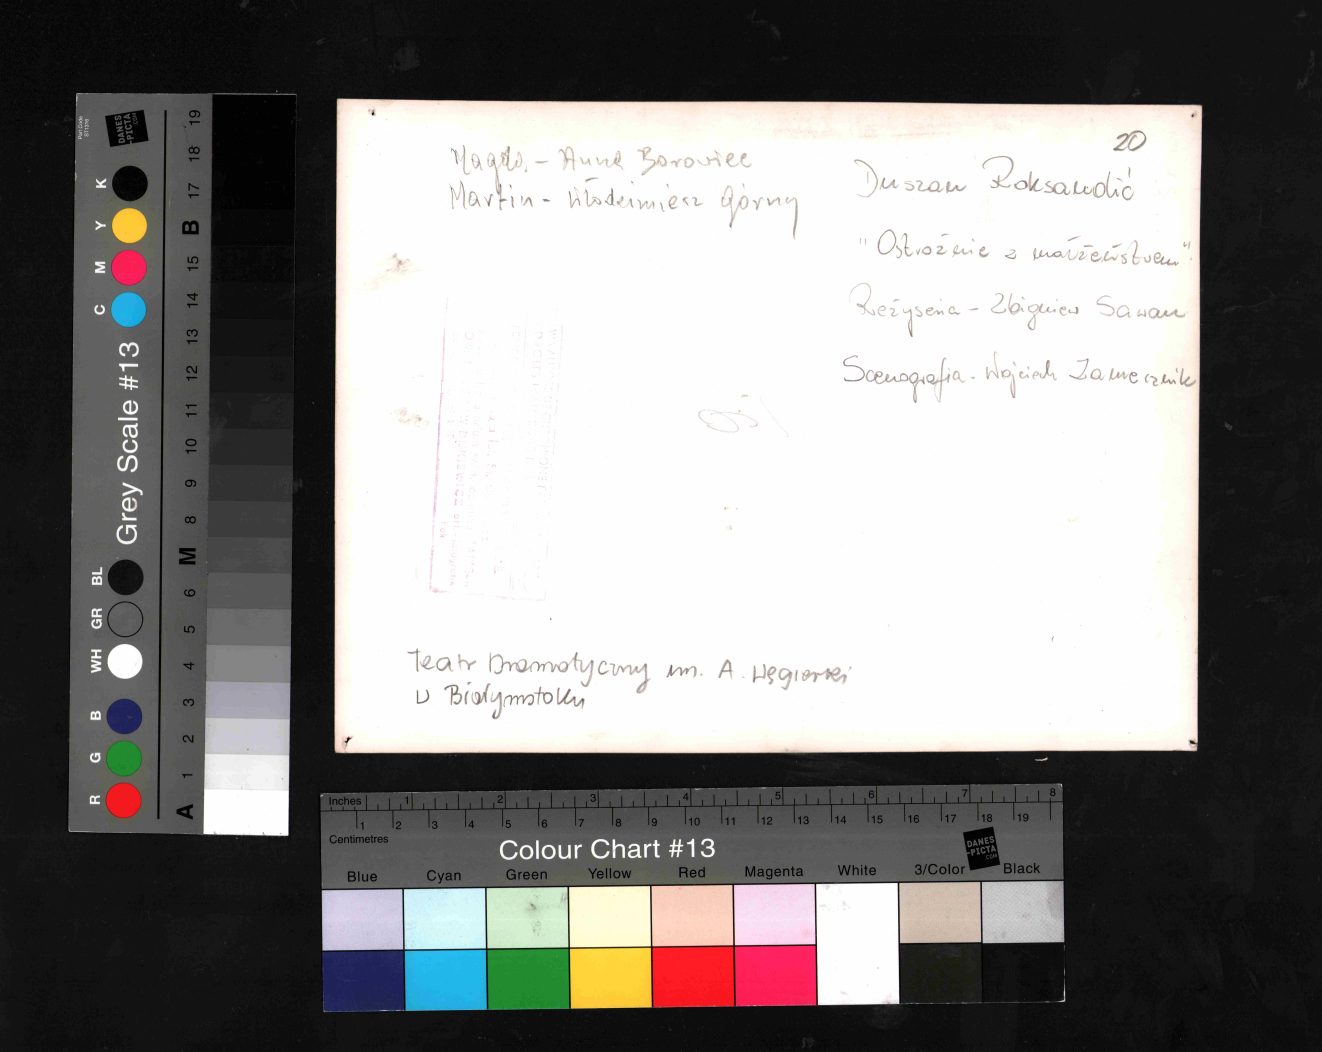 20
Magda - Anna Borowiec
Martin - Włodzimierz Górny
Duszan Roksandić
"Ostrożnie z małżeństwem"
Reżyseria - Zbigniew Sawan
Scenografia - Wojciech Zamecznik
Teatr Dramatyczny im. A. Węgierki
w Białymstoku
DANES
-PICTA
.COM
Grey Scale #13
R G B WH GR BL C M Y K
A 1 2 3 4 5 6 M 8 9 10 11 12 13 14 15 B 17 18 19
Inches 1 2 3 4 5 6 7 8
Centimetres 1 2 3 4 5 6 7 8 9 10 11 12 13 14 15 16 17 18 19
Colour Chart #13
DANES
-PICTA
.COM
Blue Cyan Green Yellow Red Magenta White 3/Color Black